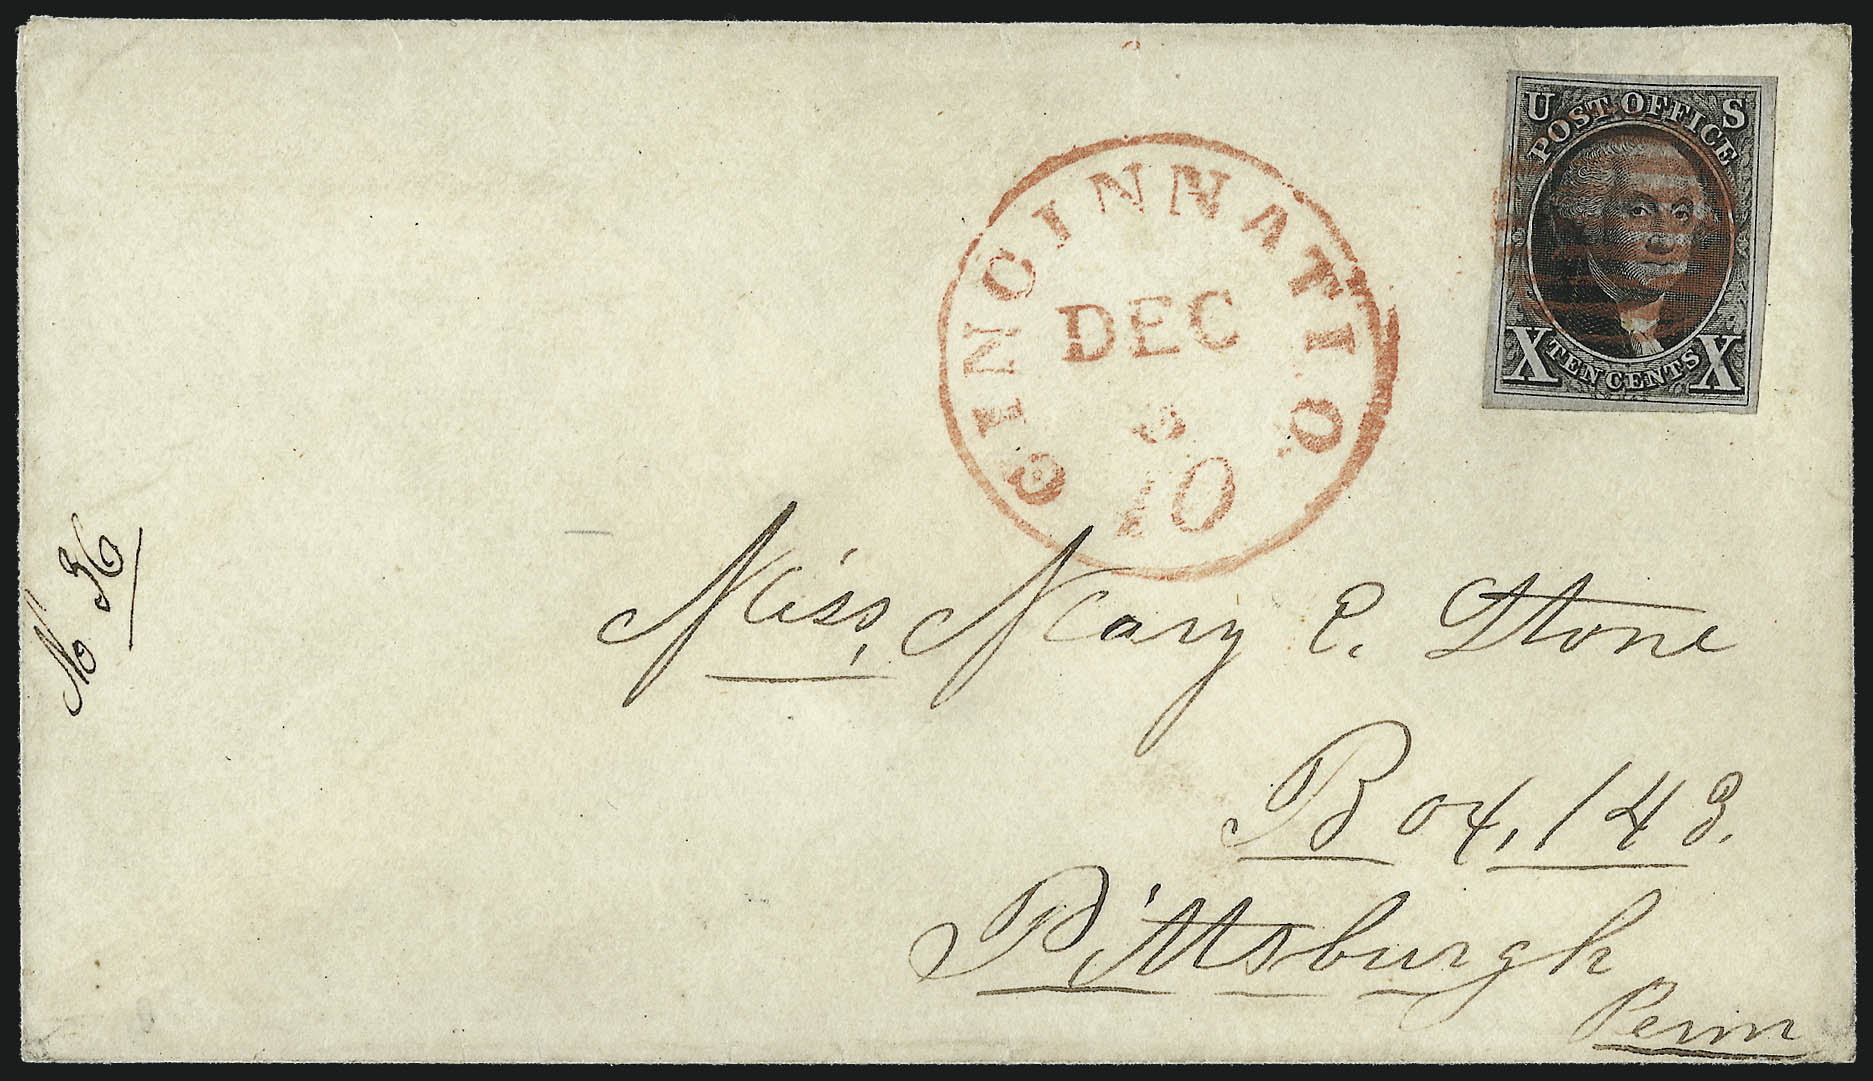 U S
POST OFFICE
X TEN CENTS X
CINCINNATI O
DEC
10
No 36
Miss, Mary E. Stone
Box, 143.
Pittsburgh
Penn